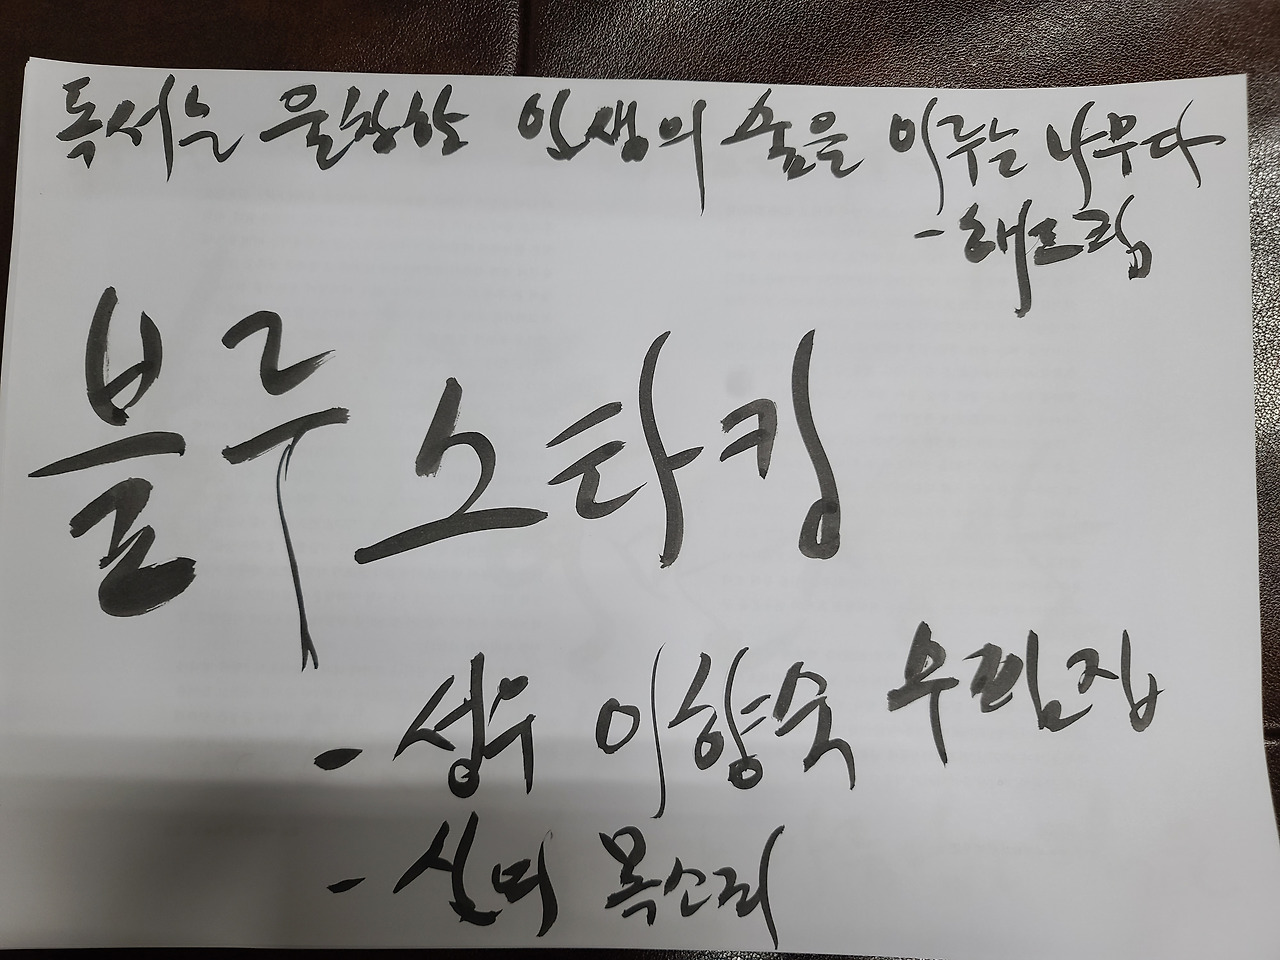 독서는 울창한 인생의 숲을 이루는 나무다
- 해드림
블루 스타킹
- 성우 이향숙 수필집
- 신의 목소리